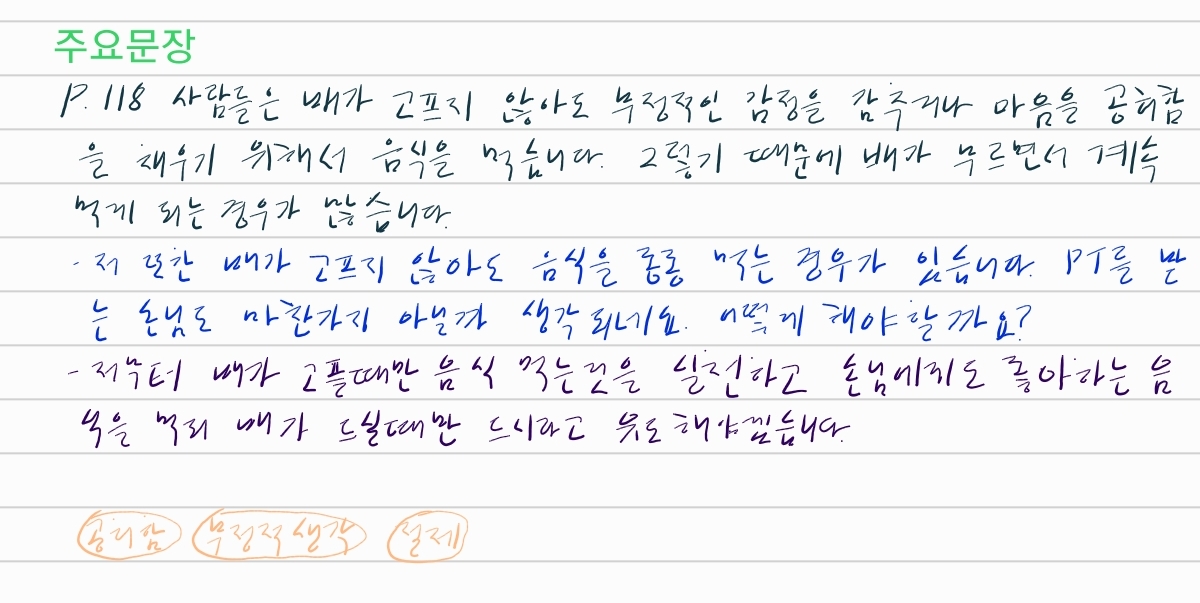 주요문장
P. 118 사람들은 배가 고프지 않아도 부정적인 감정을 감추거나 마음을 공허함
을 채우기 위해서 음식을 먹습니다. 그렇기 때문에 배가 부르면서 계속
먹게 되는 경우가 많습니다.
- 저 또한 배가 고프지 않아도 음식을 종종 먹는 경우가 있습니다. PT를 받
는 손님도 마찬가지 아닐까 생각되네요. 어떻게 해야할까요?
- 저부터 배가 고플때만 음식 먹는것을 실천하고 손님에게도 좋아하는 음
식을 먹되 배가 드실때만 드시라고 유도해야겠습니다.
공허함 부정적생각 절제